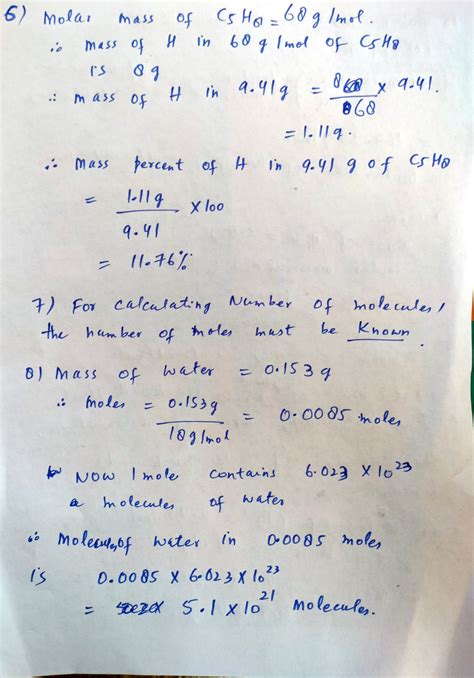 6) Molar mass of C5H8 = 68 g/mol.
∴ mass of H in 68 g/mol of C5H8
is 8 g
∴ mass of H in 9.41g = 8/68 x 9.41.
= 1.11g.
∴ Mass percent of H in 9.41 g of C5H8
= 1.11g / 9.41 x 100
= 11.76%
7) For calculating Number of molecules,
the number of moles must be Known.
8) Mass of water = 0.153 g
∴ moles = 0.153g / 18g/mol = 0.0085 moles
Now 1 mole contains 6.023 x 10^23
molecules of water
∴ Molecules of water in 0.0085 moles
is 0.0085 x 6.023 x 10^23
= 5.1 x 10^21 molecules.